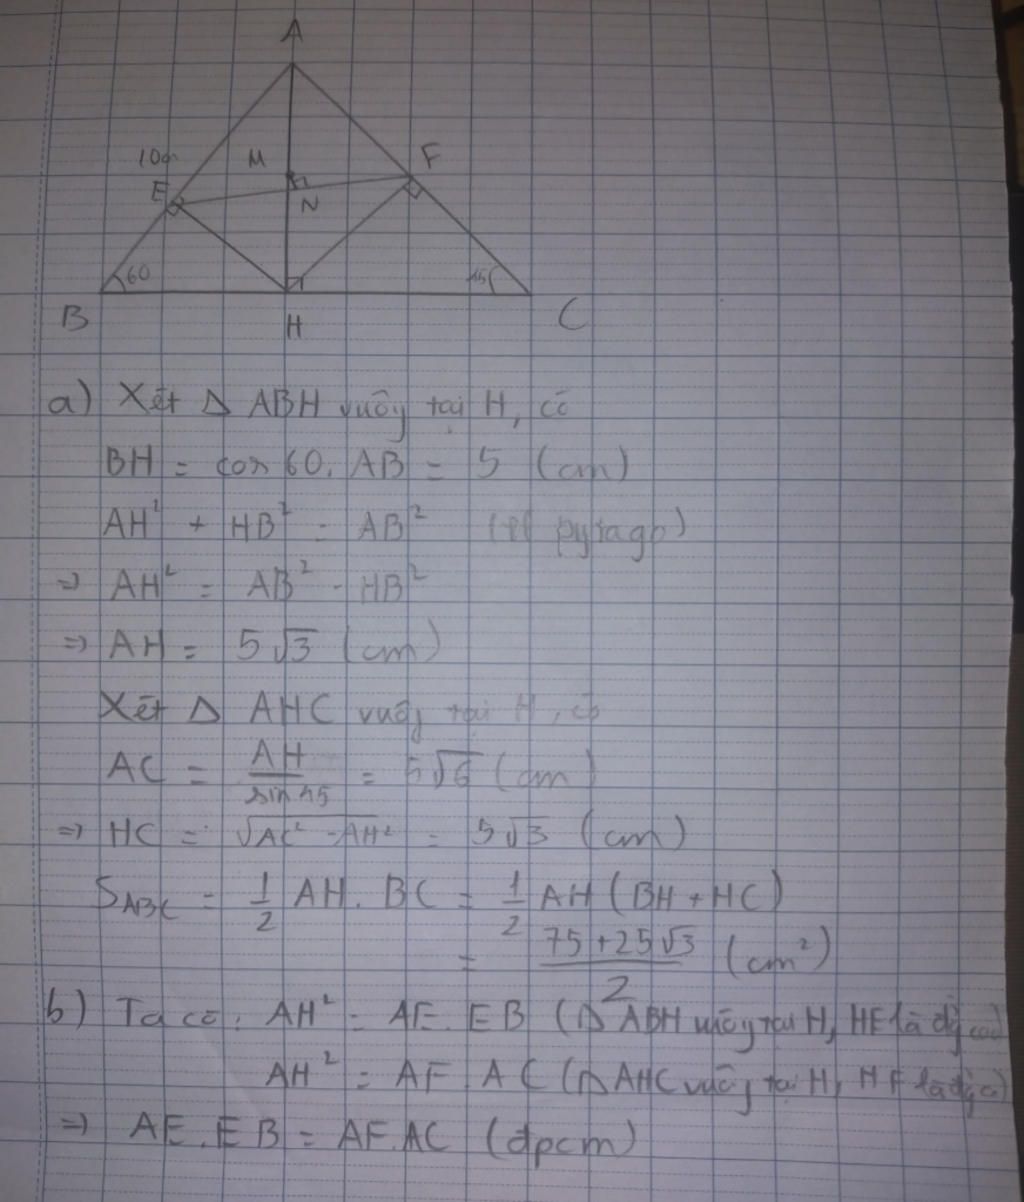 A
10cm
M
F
E
N
60
45
B
H
C
a) Xét Δ ABH vuông tại H, có
BH = cos 60. AB = 5 (cm)
AH² + HB² = AB² (đl pytago)
=> AH² = AB² - HB²
=> AH = 5√3 (cm)
Xét Δ AHC vuông tại H, có
AC = AH / sin 45 = 5√6 (cm)
=> HC = √AC² - AH² = 5√3 (cm)
S ABC = 1/2 AH. BC = 1/2 AH (BH + HC)
= 75 + 25√3 / 2 (cm²)
b) Ta có: AH² = AE. EB (Δ ABH vuông tại H, HE là đg cao)
AH² = AF. AC (Δ AHC vuông tại H, HF là đg c)
=> AE. EB = AF. AC (đpcm)